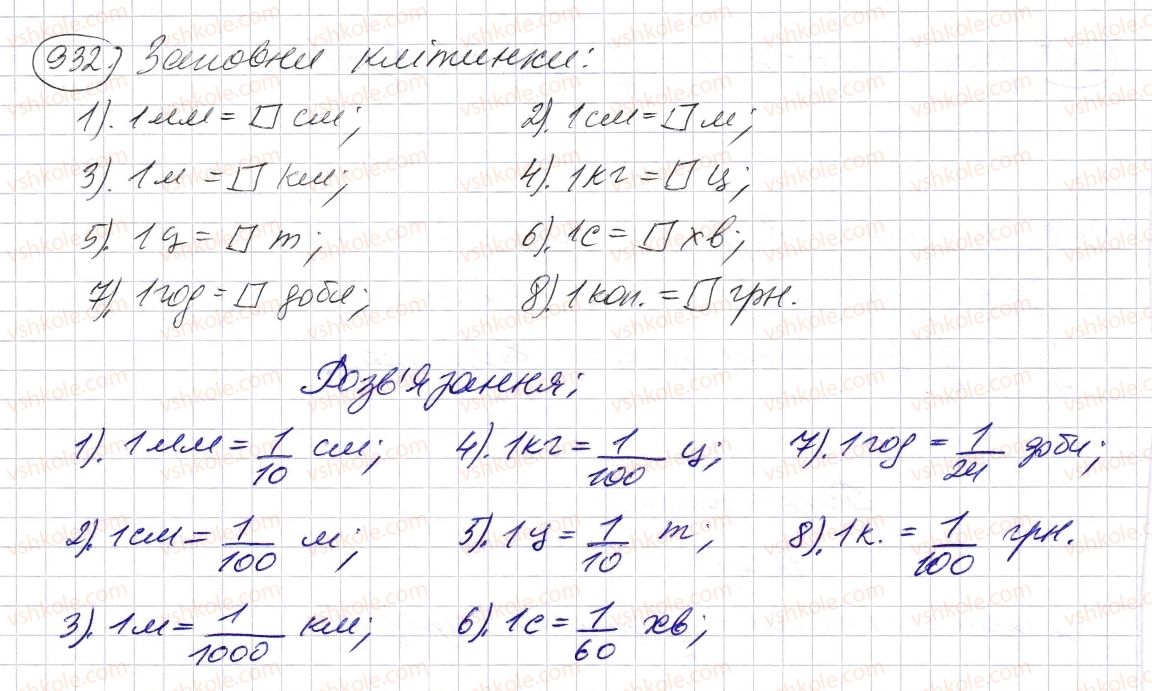 932) Заповни клітинки:
1). 1мм = □ см; 2). 1см = □ м;
3). 1м = □ км; 4). 1кг = □ ц;
5). 1ц = □ т; 6). 1с = □ хв;
7). 1год = □ доби; 8). 1коп. = □ грн.
Розв'язання;
1). 1мм = 1/10 см; 4). 1кг = 1/100 ц; 7). 1год = 1/24 доби;
2). 1см = 1/100 м; 5). 1ц = 1/10 т; 8). 1к. = 1/100 грн.
3). 1м = 1/1000 км; 6). 1с = 1/60 хв;
vshkole.com